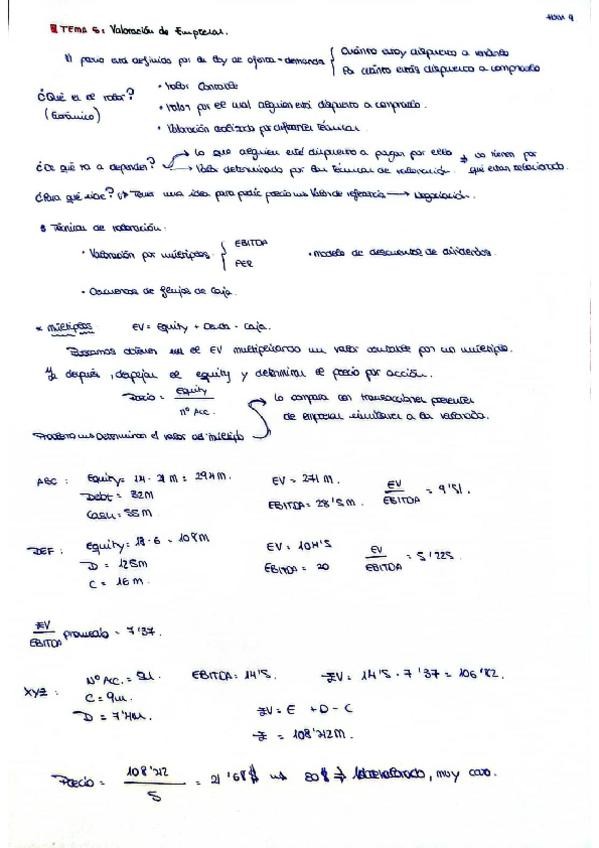 TEMA 5: Valoración de Empresas.
El precio está definido por la ley de oferta-demanda
Cuánto estoy dispuesto a venderlo
Por cuánto estás dispuesto a comprarlo
¿Qué es el valor?
(Genérico)
• Valor Contable
• Valor por el cual alguien está dispuesto a comprarlo.
• Valoración realizada por diferentes técnicas.
¿De qué va a depender?
lo que alguien esté dispuesto a pagar por ello
Valor determinado por las técnicas de valoración.
no tienen por
qué estar relacionado.
¿Para qué sirve? Tener una idea para pedir precio Valor de referencia → Negociación.
Técnicas de valoración:
• Valoración por múltiplos
EBITDA
PER
• Modelo de descuentos de dividendos.
• Descuentos de flujos de caja.
* Múltiplos
EV = Equity + Deuda - Caja.
Podemos obtener el EV multiplicando un valor contable por un múltiplo.
Ya después, despejar el equity y determinar el precio por acción.
Precio = Equity
nº Acc.
lo compara con transacciones
de empresas similares a la valorada.
Problema Determinar el valor del múltiplo
ABC: Equity = 14 · 21 M = 294 M.
Debt = 32M
Cash = 55M
EV = 271 M.
EBITDA = 28'5 M.
EV
EBITDA
= 9'51.
DEF: Equity = 18 · 6 = 108M
D = 12'5M
C = 16 M.
EV = 104'5
EBITDA = 20
EV
EBITDA
= 5'225.
EV
EBITDA
promedio = 7'37.
XYZ:
Nº Acc. = 5M.
C = 9M.
D = 7'4M.
EBITDA = 14'5.
EV = 14'5 · 7'37 = 106'82.
EV = E + D - C
E = 108'212M.
Precio = 108'212
5
= 21'68$ 80$ ⇒ sobrevalorado, muy caro.